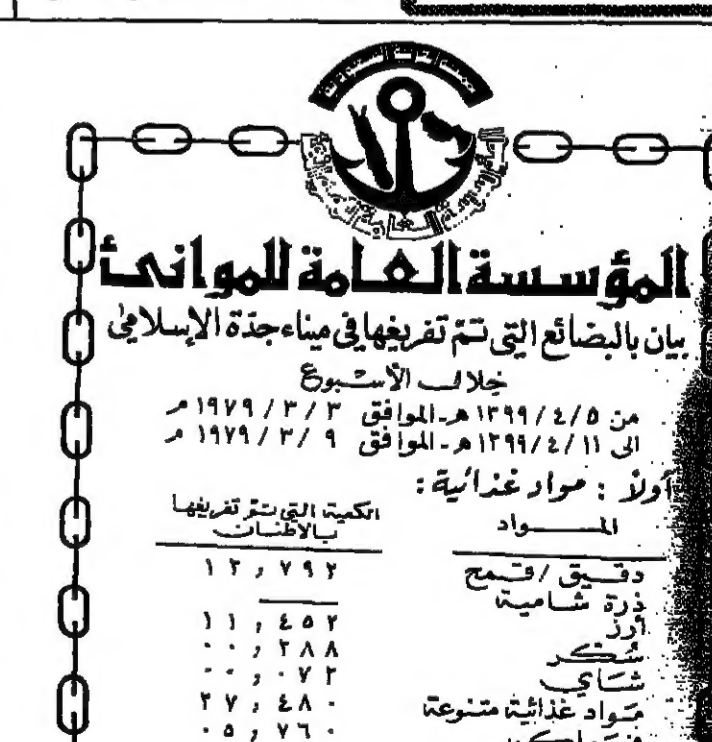 المؤسسة العامة للموانئ
بيان بالبضائع التي تم تفريغها في ميناء جدة الإسلامي
خلال الأسبوع
من ١٣٩٩/٤/٥ هـ - الموافق ١٩٧٩/٣/٣ م
الى ١٣٩٩/٤/١١ هـ - الموافق ١٩٧٩/٣/٩ م
أولاً : مواد غذائية :
المــــواد الكمية التي تم تفريغها بالأطنان
دقيق / قمح ١٢,٧٩٢
ذرة شامية ــــ
أرز ١١,٤٥٢
سُكر ٠٠,٢٨٨
شاي ٠٠,٠٧٢
مواد غذائية متنوعة ٢٧,٤٨٠
٠٥,٧٦٠